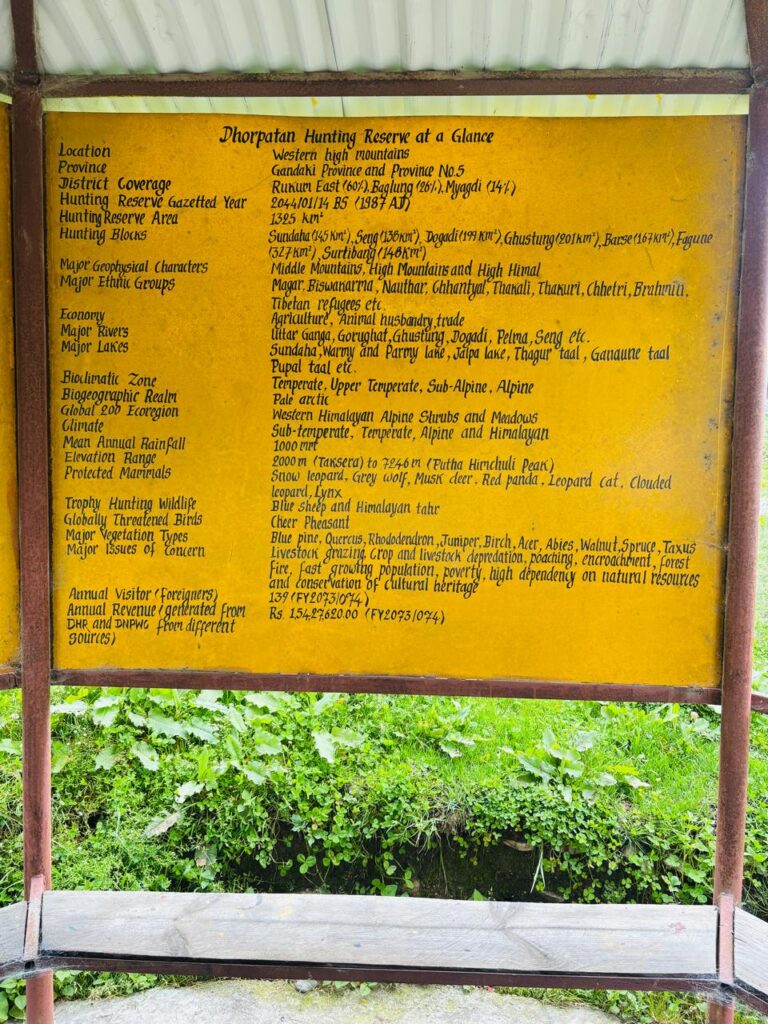 Dhorpatan Hunting Reserve at a Glance
Location Western high mountains
Province Gandaki Province and Province No.5
District Coverage Rukum East (60%), Baglung (26%), Myagdi (14%)
Hunting Reserve Gazetted Year 2044/01/14 BS (1987 AD)
Hunting Reserve Area 1325 km²
Hunting Blocks Sundaha (145 km²), Seng (138 km²), Dogadi (199 km²), Ghustung (201 km²), Barse (167 km²), Fagune
(327 km²), Surtibang (148 km²)
Major Geophysical Characters Middle Mountains, High Mountains and High Himal
Major Ethnic Groups Magar, Biswakarma, Nauthar, Chhantyal, Thakali, Thakuri, Chhetri, Brahmin,
Tibetan refugees etc.
Economy Agriculture, Animal husbandry, trade
Major Rivers Uttar Ganga, Gorughat, Ghustung, Dogadi, Pelma, Seng etc.
Major Lakes Sundaha, Warmy and Parmy lake, Jalpa lake, Thagur taal, Ganaune taal
Pupal taal etc.
Bioclimatic Zone Temperate, Upper Temperate, Sub-Alpine, Alpine
Biogeographic Realm Pale arctic
Global 200 Ecoregion Western Himalayan Alpine Shrubs and Meadows
Climate Sub-temperate, Temperate, Alpine and Himalayan
Mean Annual Rainfall 1000 mm
Elevation Range 2000 m (Taksera) to 7246 m (Putha Himchuli Peak)
Protected Mammals Snow leopard, Grey wolf, Musk deer, Red panda, Leopard cat, Clouded
leopard, Lynx
Trophy Hunting Wildlife Blue sheep and Himalayan tahr
Globally Threatened Birds Cheer Pheasant
Major Vegetation Types Blue pine, Quercus, Rhododendron, Juniper, Birch, Acer, Abies, Walnut, Spruce, Taxus
Major Issues of Concern Livestock grazing Crop and livestock depredation, poaching, encroachment, forest
Fire, fast growing population, poverty, high dependency on natural resources
and conservation of cultural heritage
Annual Visitor (foreigners) 139 (FY2073/074)
Annual Revenue (generated from Rs. 1,54,27,620.00 (FY2073/074)
DHR and DNPWC from different
sources)